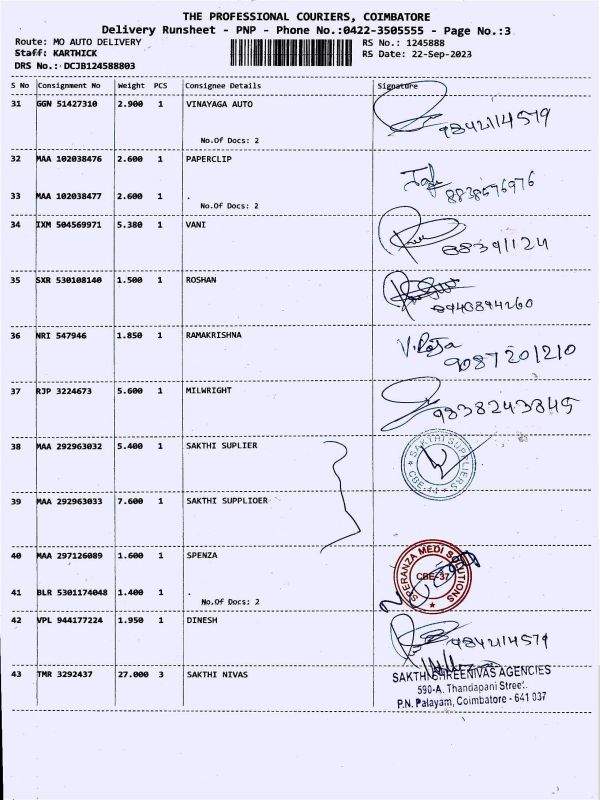 THE PROFESSIONAL COURIERS, COIMBATORE
Delivery Runsheet - PNP - Phone No.:0422-3505555 - Page No.:3
Route: MO AUTO DELIVERY RS No.: 1245888
Staff: KARTHICK RS Date: 22-Sep-2023
DRS No.: DCJB124588803
S No Consignment No Weight PCS Consignee Details Signature
31 GGN 51427310 2.900 1 VINAYAGA AUTO
9842114579
No.Of Docs: 2
32 MAA 102038476 2.600 1 PAPERCLIP
8838576976
33 MAA 102038477 2.600 1 .
No.Of Docs: 2
34 IXM 504569971 5.380 1 VANI
88391124
35 SXR 530108140 1.500 1 ROSHAN
8940894260
36 NRI 547946 1.850 1 RAMAKRISHNA
V.Raja
9087201210
37 RJP 3224673 5.600 1 MILWRIGHT
9838243845
38 MAA 292963032 5.400 1 SAKTHI SUPLIER
SAKTHI SUPPLIERS
39 MAA 292963033 7.600 1 SAKTHI SUPPLIOER
40 MAA 297126089 1.600 1 SPENZA
SPERANZA MEDI SOLUTIONS
CBE-37
41 BLR 5301174048 1.400 1 .
No.Of Docs: 2
42 VPL 944177224 1.950 1 DINESH
9842114579
43 TMR 3292437 27.000 3 SAKTHI NIVAS
SAKTHI SHREENIVAS AGENCIES
590-A. Thandapani Street.
P.N. Palayam, Coimbatore - 641 037